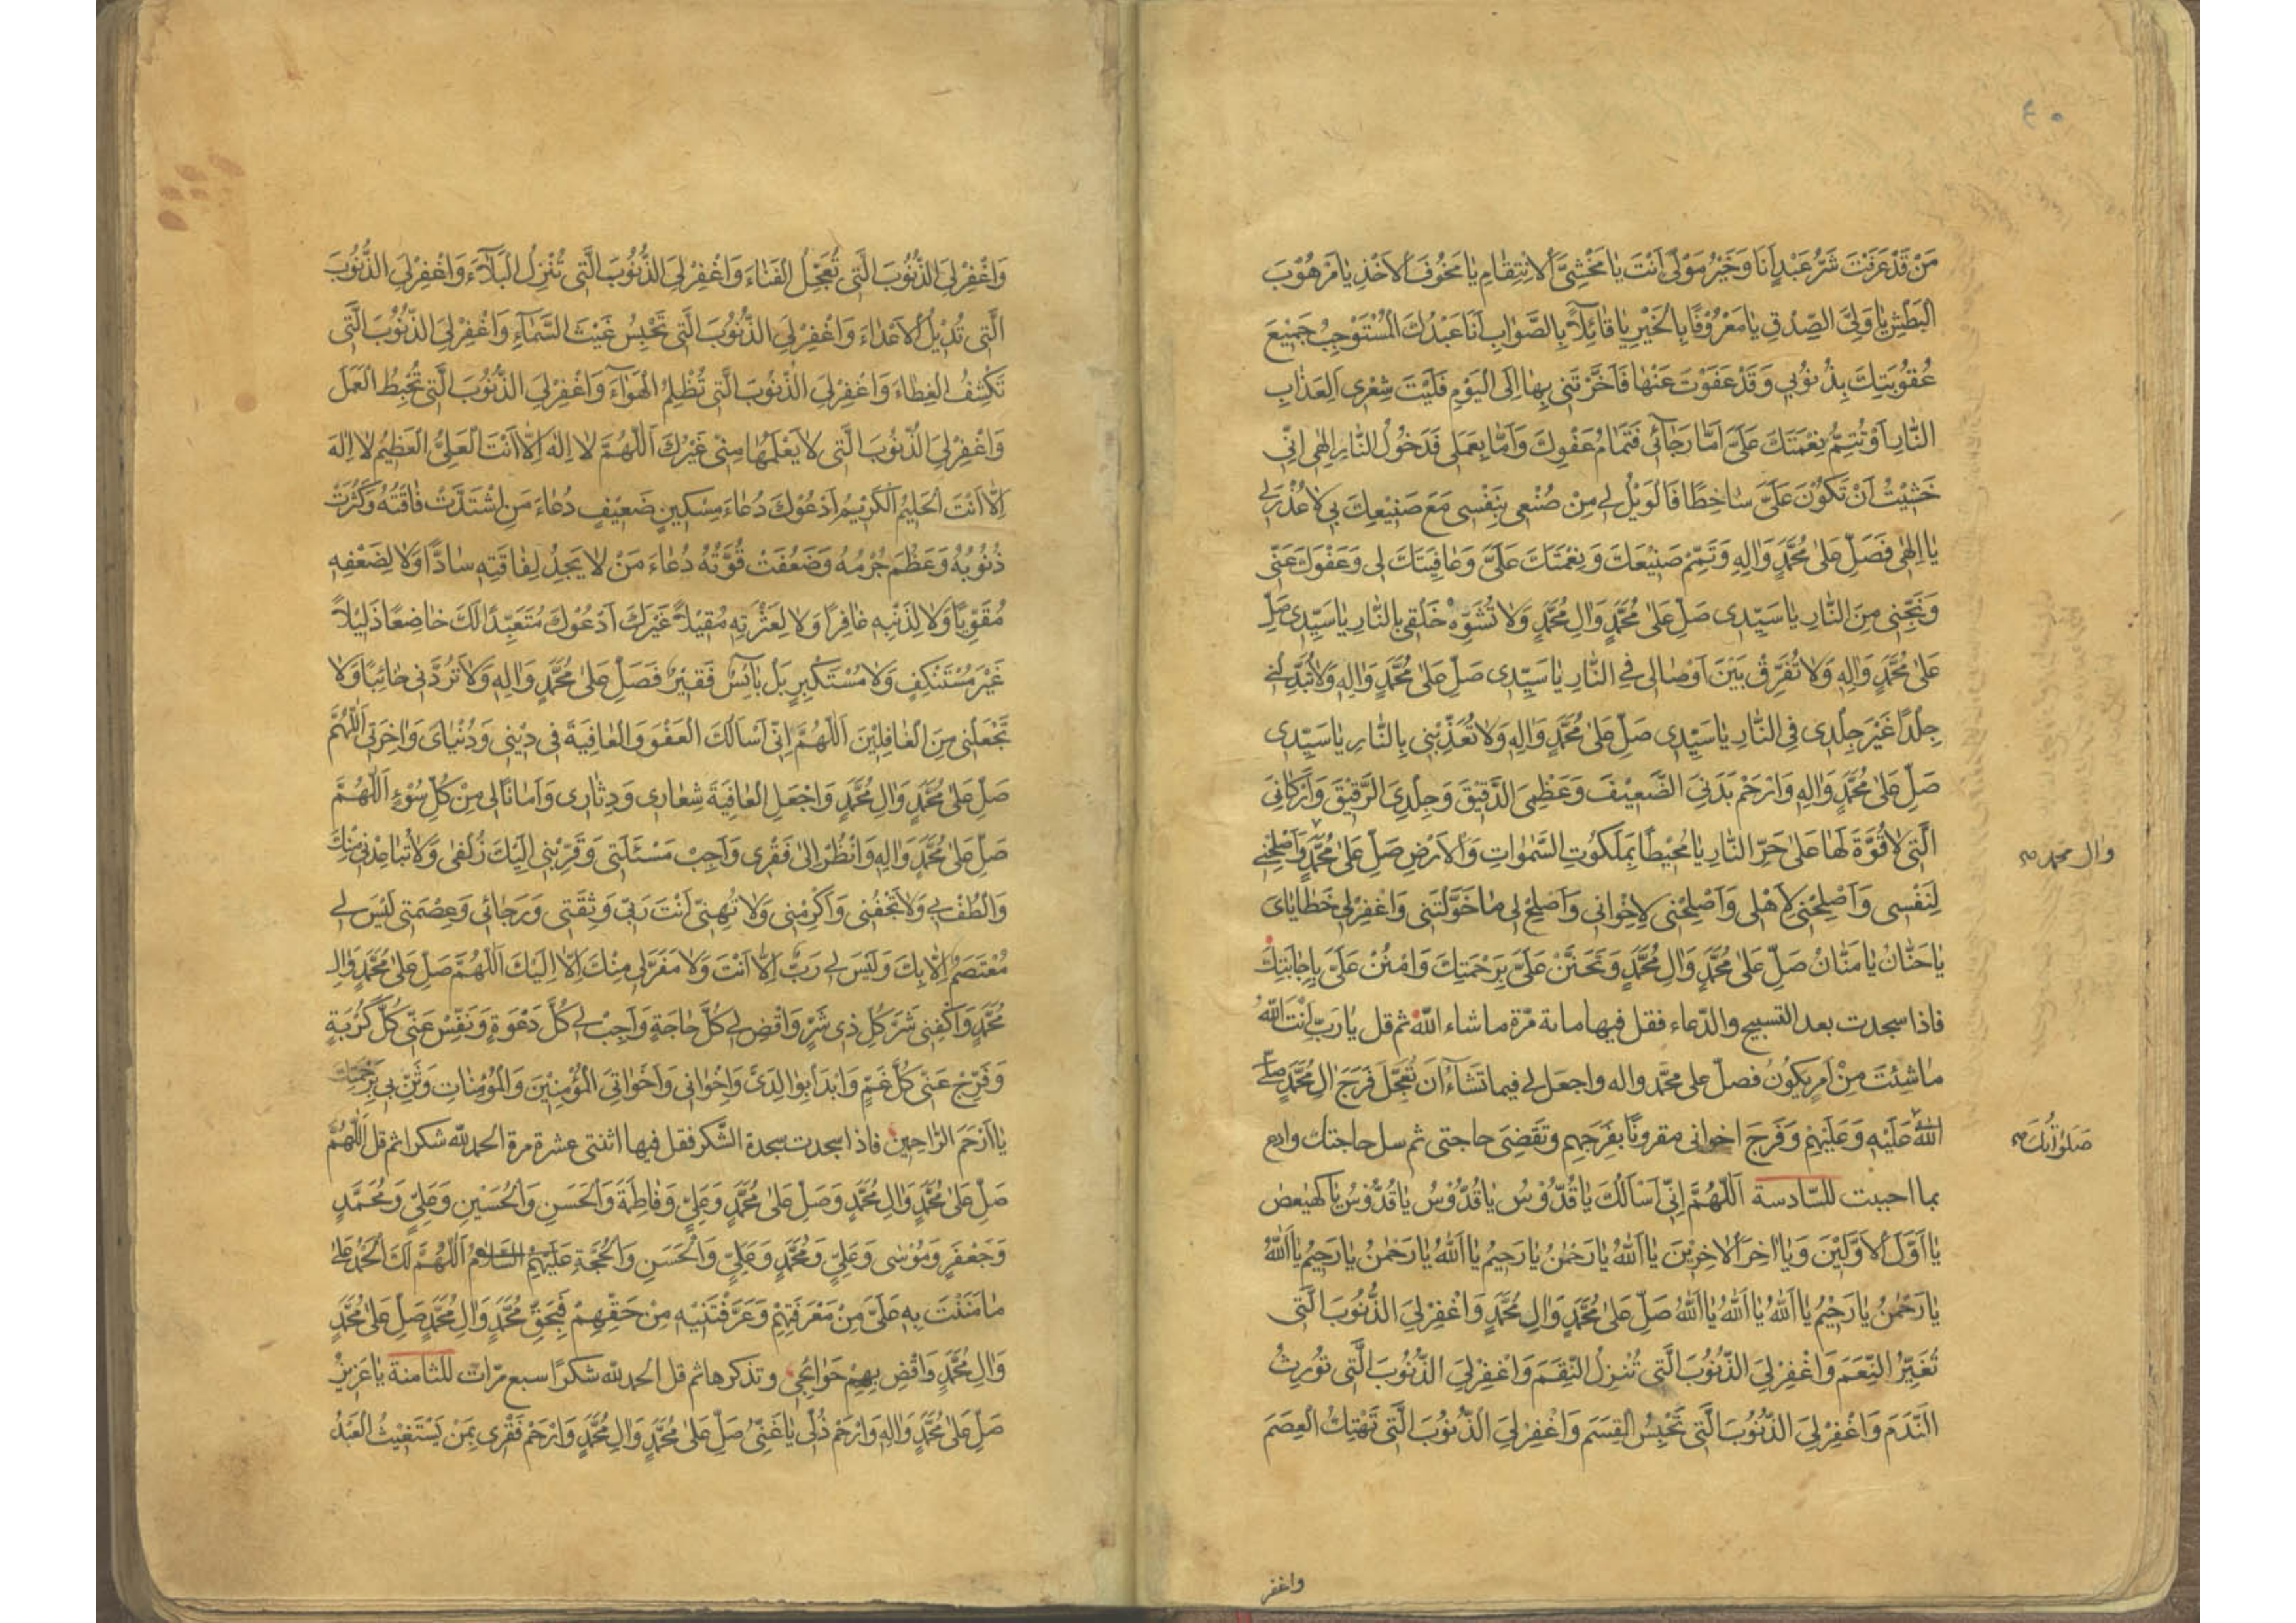 ٤٠
مَنْ قَدْ عَرَفْتَ شَرُّ عَبْدٍ اَنَا وَخَيْرُ مَوْلًى اَنْتَ يَا مَخْشِىَّ الْاِنْتِقَامِ يَا مَخُوفَ الْاَخْذِ يَا مَرْهُوْبَ
الْبَطْشِ يَا وَلِىَّ الصِّدْقِ يَا مَعْرُوْفًا بِالْخَيْرِ يَا قَائِلًا بِالصَّوَابِ اَنَا عَبْدُكَ الْمُسْتَوْجِبُ جَمِيْعَ
عُقُوْبَتِكَ بِذُنُوْبِي وَقَدْ عَفَوْتَ عَنْهَا فَاَخَّرْتَنِى بِهَا اِلَى الْيَوْمِ فَلَيْتَ شِعْرِى اَلِعَذَابِ
النَّارِ اَوْ تُتِمُّ نِعْمَتَكَ عَلَىَّ اَمَّا رَجَائِى فَتَمَامُ عَفْوِكَ وَاَمَّا بِعَمَلِى فَدُخُولُ النَّارِ اِلٰهِى اِنِّى
خَشِيْتُ اَنْ تَكُوْنَ عَلَىَّ سَاخِطًا فَالْوَيْلُ لِى مِنْ صُنْعِى بِنَفْسِى مَعَ صَنِيْعِكَ بِى لَا عُذْرَ لِى
يَا اِلٰهِى فَصَلِّ عَلٰى مُحَمَّدٍ وَاٰلِهِ وَتَمِّمْ صَنِيْعَكَ وَنِعْمَتَكَ عَلَىَّ وَعَافِيَتَكَ لِى وَعَفْوَكَ عَنِّى
وَنَجِّنِى مِنَ النَّارِ يَا سَيِّدِى صَلِّ عَلٰى مُحَمَّدٍ وَاٰلِ مُحَمَّدٍ وَلَا تُشَوِّهْ خَلْقِى بِالنَّارِ يَا سَيِّدِى صَلِّ
عَلٰى مُحَمَّدٍ وَاٰلِهِ وَلَا تُفَرِّقْ بَيْنَ اَوْصَالِى فِى النَّارِ يَا سَيِّدِى صَلِّ عَلٰى مُحَمَّدٍ وَاٰلِهِ وَلَا تُبَدِّلْنِى
جِلْدًا غَيْرَ جِلْدِى فِى النَّارِ يَا سَيِّدِى صَلِّ عَلٰى مُحَمَّدٍ وَاٰلِهِ وَلَا تُعَذِّبْنِى بِالنَّارِ يَا سَيِّدِى
صَلِّ عَلٰى مُحَمَّدٍ وَاٰلِهِ وَارْحَمْ بَدَنِىَ الضَّعِيْفَ وَعَظْمِىَ الدَّقِيْقَ وَجِلْدِىَ الرَّقِيْقَ وَاَرْكَانِىَ
الَّتِى لَا قُوَّةَ لَهَا عَلٰى حَرِّ النَّارِ يَا مُحِيْطًا بِمَلَكُوتِ السَّمٰوَاتِ وَالْاَرْضِ صَلِّ عَلٰى مُحَمَّدٍ وَاَصْلِحْنِى
وال محمد صح
لِنَفْسِى وَاَصْلِحْنِى لِاَهْلِى وَاَصْلِحْنِى لِاِخْوَانِى وَاَصْلِحْ لِى مَا خَوَّلْتَنِى وَاغْفِرْ لِى خَطَايَاىَ
يَا حَنَّانُ يَا مَنَّانُ صَلِّ عَلٰى مُحَمَّدٍ وَاٰلِ مُحَمَّدٍ وَتَحَنَّنْ عَلَىَّ بِرَحْمَتِكَ وَامْنُنْ عَلَىَّ بِاِجَابَتِكَ
فاذا سجدت بعد التسبيح والدّعاء فقل فيها مائة مرّة ما شاء اللّٰه ثم قل يَا رَبِّ اَنْتَ اللّٰهُ
مَا شِئْتَ مِنْ اَمْرٍ يَكُونُ فصلّ على محمّد واله واجعل لى فيما تَشَاءُ اَنْ تُعَجِّلَ فَرَجَ اٰلِ مُحَمَّدٍ صَلَّى
اللّٰهُ عَلَيْهِ وَعَلَيْهِمْ وَفَرَجَ اخوانى مقرونًا بفَرَجِهم وتَقضِىَ حاجتى ثم سل حاجتك وادع
صَلَوَاتُكَ صح
بما احببت للسّادسة اَللّٰهُمَّ اِنِّى اَسْاَلُكَ يَا قُدُّوْسُ يَا قُدُّوْسُ يَا قُدُّوْسُ يَا كهيعص
يَا اَوَّلَ الْاَوَّلِيْنَ وَيَا اٰخِرَ الْاٰخِرِيْنَ يَا اَللّٰهُ يَا رَحْمٰنُ يَا رَحِيمُ يَا اَللّٰهُ يَا رَحْمٰنُ يَا رَحِيمُ يَا اَللّٰهُ
يَا رَحْمٰنُ يَا رَحِيْمُ يَا اَللّٰهُ يَا اَللّٰهُ يَا اَللّٰهُ صَلِّ عَلٰى مُحَمَّدٍ وَاٰلِ مُحَمَّدٍ وَاغْفِرْ لِىَ الذُّنُوْبَ الَّتِى
تُغَيِّرُ النِّعَمَ وَاغْفِرْ لِىَ الذُّنُوْبَ الَّتِى تُنْزِلُ النِّقَمَ وَاغْفِرْ لِىَ الذُّنُوْبَ الَّتِى تُوْرِثُ
النَّدَمَ وَاغْفِرْ لِىَ الذُّنُوْبَ الَّتِى تَحْبِسُ الْقِسَمَ وَاغْفِرْ لِىَ الذُّنُوْبَ الَّتِى تَهْتِكُ الْعِصَمَ
واغفر
وَاغْفِرْ لِىَ الذُّنُوْبَ الَّتِى تُعَجِّلُ الْفَنَاءَ وَاغْفِرْ لِىَ الذُّنُوْبَ الَّتِى تُنْزِلُ الْبَلَاءَ وَاغْفِرْ لِىَ الذُّنُوْبَ
الَّتِى تُدِيْلُ الْاَعْدَاءَ وَاغْفِرْ لِىَ الذُّنُوْبَ الَّتِى تَحْبِسُ غَيْثَ السَّمَاءِ وَاغْفِرْ لِىَ الذُّنُوْبَ الَّتِى
تَكْشِفُ الْغِطَاءَ وَاغْفِرْ لِىَ الذُّنُوْبَ الَّتِى تُظْلِمُ الْهَوَاءَ وَاغْفِرْ لِىَ الذُّنُوْبَ الَّتِى تُحْبِطُ الْعَمَلَ
وَاغْفِرْ لِىَ الذُّنُوْبَ الَّتِى لَا يَعْلَمُهَا مِنِّى غَيْرُكَ اَللّٰهُمَّ لَا اِلٰهَ اِلَّا اَنْتَ الْعَلِىُّ الْعَظِيْمُ لَا اِلٰهَ
اِلَّا اَنْتَ الْحَلِيْمُ الْكَرِيْمُ اَدْعُوْكَ دُعَاءَ مِسْكِيْنٍ ضَعِيْفٍ دُعَاءَ مَنِ اشْتَدَّتْ فَاقَتُهُ وَكَثُرَتْ
ذُنُوْبُهُ وَعَظُمَ جُرْمُهُ وَضَعُفَتْ قُوَّتُهُ دُعَاءَ مَنْ لَا يَجِدُ لِفَاقَتِهِ سَادًّا وَلَا لِضَعْفِهِ
مُقَوِّيًا وَلَا لِذَنْبِهِ غَافِرًا وَلَا لِعَثْرَتِهِ مُقِيْلًا غَيْرَكَ اَدْعُوْكَ مُتَعَبِّدًا لَكَ خَاضِعًا ذَلِيْلًا
غَيْرَ مُسْتَنْكِفٍ وَلَا مُسْتَكْبِرٍ بَلْ بَائِسٌ فَقِيْرٌ فَصَلِّ عَلٰى مُحَمَّدٍ وَاٰلِهِ وَلَا تَرُدَّنِى خَائِبًا وَلَا
تَجْعَلْنِى مِنَ الْغَافِلِيْنَ اَللّٰهُمَّ اِنِّى اَسْاَلُكَ الْعَفْوَ وَالْعَافِيَةَ فِى دِيْنِى وَدُنْيَاىَ وَاٰخِرَتِى اَللّٰهُمَّ
صَلِّ عَلٰى مُحَمَّدٍ وَاٰلِ مُحَمَّدٍ وَاجْعَلِ الْعَافِيَةَ شِعَارِى وَدِثَارِى وَاَمَانًا لِى مِنْ كُلِّ سُوْءٍ اَللّٰهُمَّ
صَلِّ عَلٰى مُحَمَّدٍ وَاٰلِهِ وَانْظُرْ اِلٰى فَقْرِى وَاَجِبْ مَسْئَلَتِى وَقَرِّبْنِى اِلَيْكَ زُلْفٰى وَلَا تُبَاعِدْنِى مِنْكَ
وَالْطُفْ بِى وَلَا تَجْفُنِى وَاَكْرِمْنِى وَلَا تُهِنِّى اَنْتَ رَبِّى وَثِقَتِى وَرَجَائِى وَعِصْمَتِى لَيْسَ لِى
مُعْتَصَمٌ اِلَّا بِكَ وَلَيْسَ لِى رَبٌّ اِلَّا اَنْتَ وَلَا مَفَرَّ لِى مِنْكَ اِلَّا اِلَيْكَ اَللّٰهُمَّ صَلِّ عَلٰى مُحَمَّدٍ وَاٰلِ
مُحَمَّدٍ وَاكْفِنِى شَرَّ كُلِّ ذِى شَرٍّ وَاقْضِ لِى كُلَّ حَاجَةٍ وَاَجِبْ لِى كُلَّ دَعْوَةٍ وَنَفِّسْ عَنِّى كُلَّ كُرْبَةٍ
وَفَرِّجْ عَنِّى كُلَّ غَمٍّ وَابْدَاْ بِوَالِدَىَّ وَاِخْوَانِى وَاَخَوَاتِىَ الْمُؤْمِنِيْنَ وَالْمُؤْمِنَاتِ وَثَنِّ بِى بِرَحْمَتِكَ
يَا اَرْحَمَ الرَّاحِمِيْنَ فاذا سجدت سجدة الشّكر فقل فيها اثنتى عشرة مرة الحمد للّٰه شكرا ثم قل اَللّٰهُمَّ
صَلِّ عَلٰى مُحَمَّدٍ وَاٰلِ مُحَمَّدٍ وَصَلِّ عَلٰى مُحَمَّدٍ وَعَلِىٍّ وَفَاطِمَةَ وَالْحَسَنِ وَالْحُسَيْنِ وَعَلِىٍّ وَمُحَمَّدٍ
وَجَعْفَرٍ وَمُوْسٰى وَعَلِىٍّ وَمُحَمَّدٍ وَعَلِىٍّ وَالْحَسَنِ وَالْحُجَّةِ عَلَيْهِمُ السَّلَامُ اَللّٰهُمَّ لَكَ الْحَمْدُ عَلٰى
مَا مَنَنْتَ بِهِ عَلَىَّ مِنْ مَعْرِفَتِهِمْ وَعَرَّفْتَنِيْهِ مِنْ حَقِّهِمْ فَبِحَقِّ مُحَمَّدٍ وَاٰلِ مُحَمَّدٍ صَلِّ عَلٰى مُحَمَّدٍ
وَاٰلِ مُحَمَّدٍ وَاقْضِ بِهِمْ حَوَائِجِى وتذكرها ثم قل الحمد للّٰه شكرًا سبع مرّات للثامنة يَا عَزِيْزُ
صَلِّ عَلٰى مُحَمَّدٍ وَاٰلِهِ وَارْحَمْ ذُلِّى يَا غَنِىُّ صَلِّ عَلٰى مُحَمَّدٍ وَاٰلِ مُحَمَّدٍ وَارْحَمْ فَقْرِى بِمَنْ يَسْتَغِيْثُ الْعَبْدُ